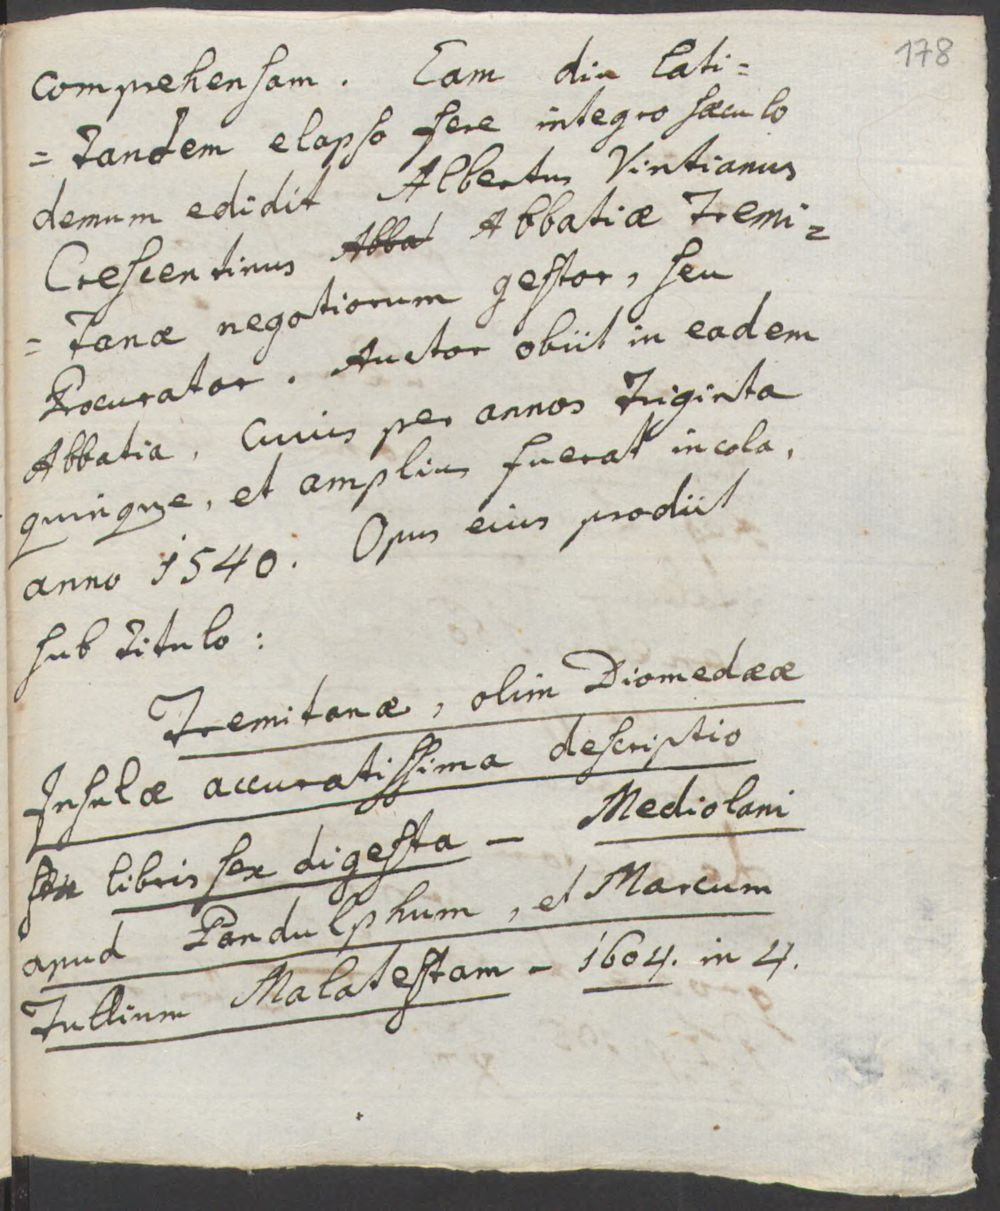 178
comprehensam. Eam diu lati=
=tandem elapso fere integro sæculo
demum edidit Albertus Vintianus
Crescentinus Abba Abbatiæ Tremi=
=tanæ negotiorum gestor, seu
Procurator. Auctor obiit in eadem
Abbatia, cuius per annos triginta
quinque, et amplius fuerat incola,
anno 1540. Opus eius prodiit
sub titulo:
Tremitanæ, olim Diomedææ
Insulæ accuratissima descriptio
libris sex digesta - Mediolani
apud Pandulphum, et Marcum
Tullium Malatestam - 1604. in 4.